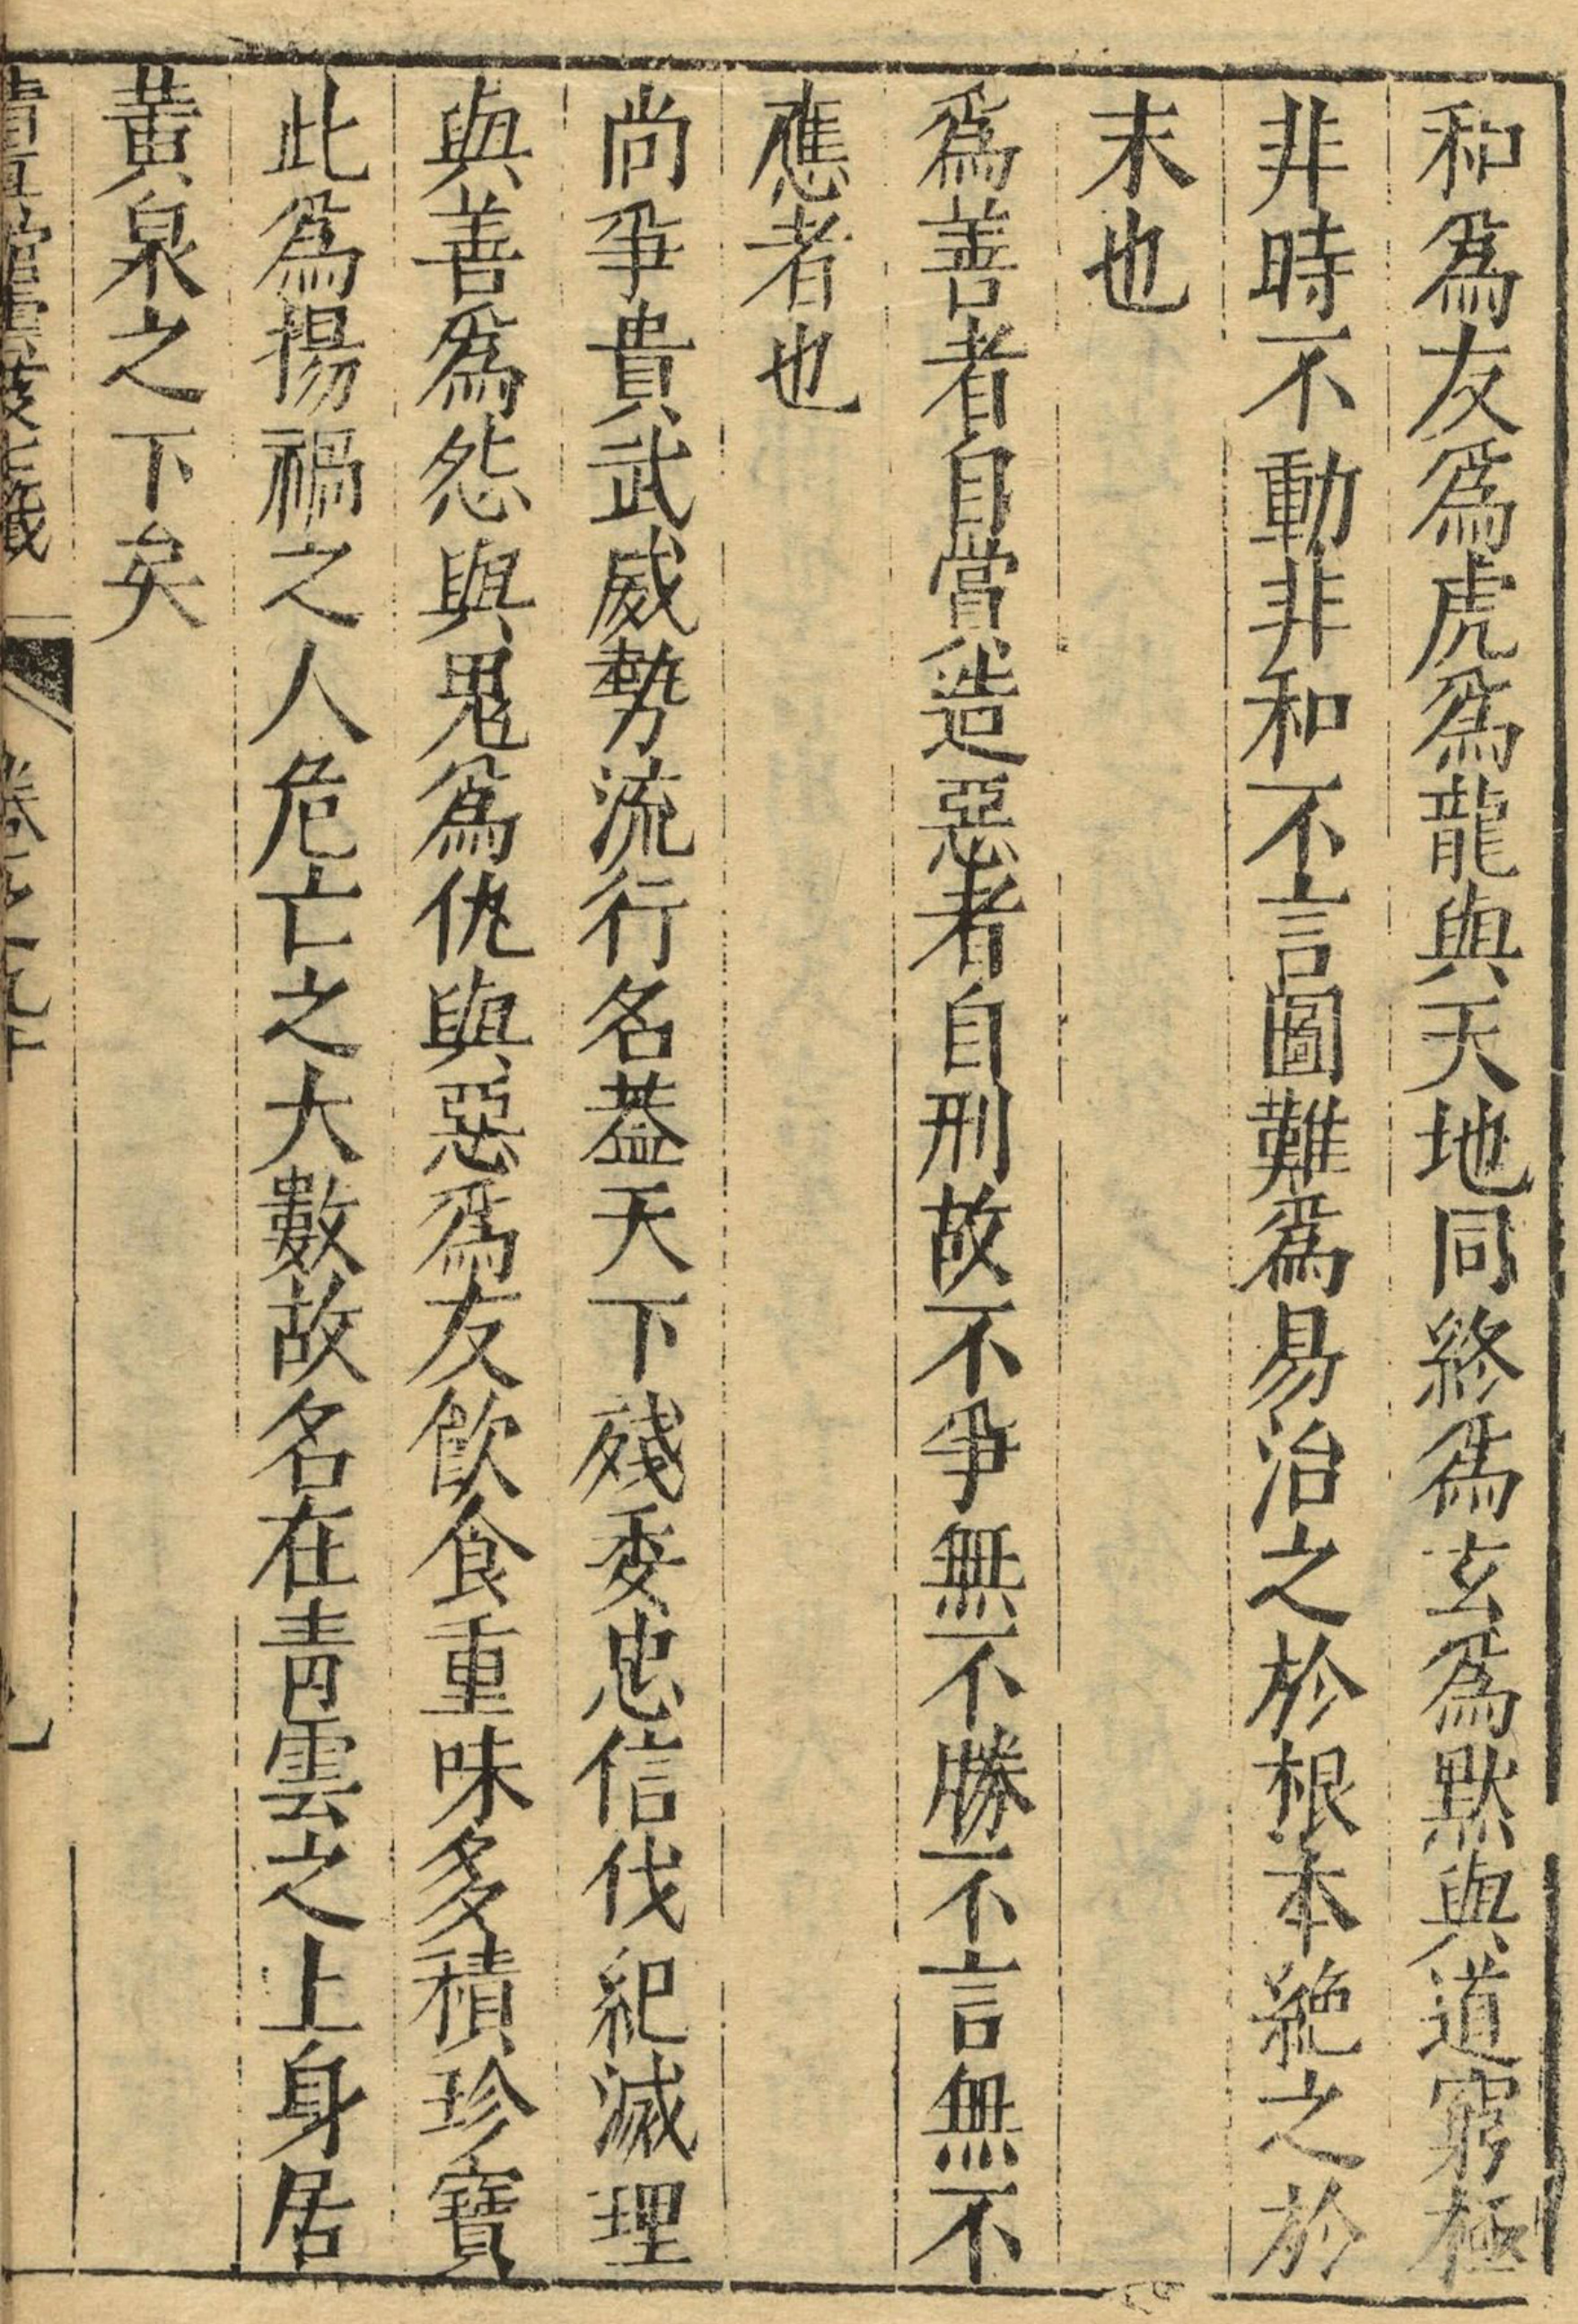 和爲友爲虎爲龍與天地同終爲玄爲默與道窮極
非時不動非和不言圖難爲易治之於根本絶之於
末也
爲善者自賞造惡者自刑故不爭無不勝不言無不
應者也
尚爭貴武威勢流行名葢天下殘委忠信伐紀滅理
與善爲怨與鬼爲仇與惡爲友飲食重味多積珍寶
此爲揚禍之人危亡之大數故名在靑雲之上身居
黃泉之下矣